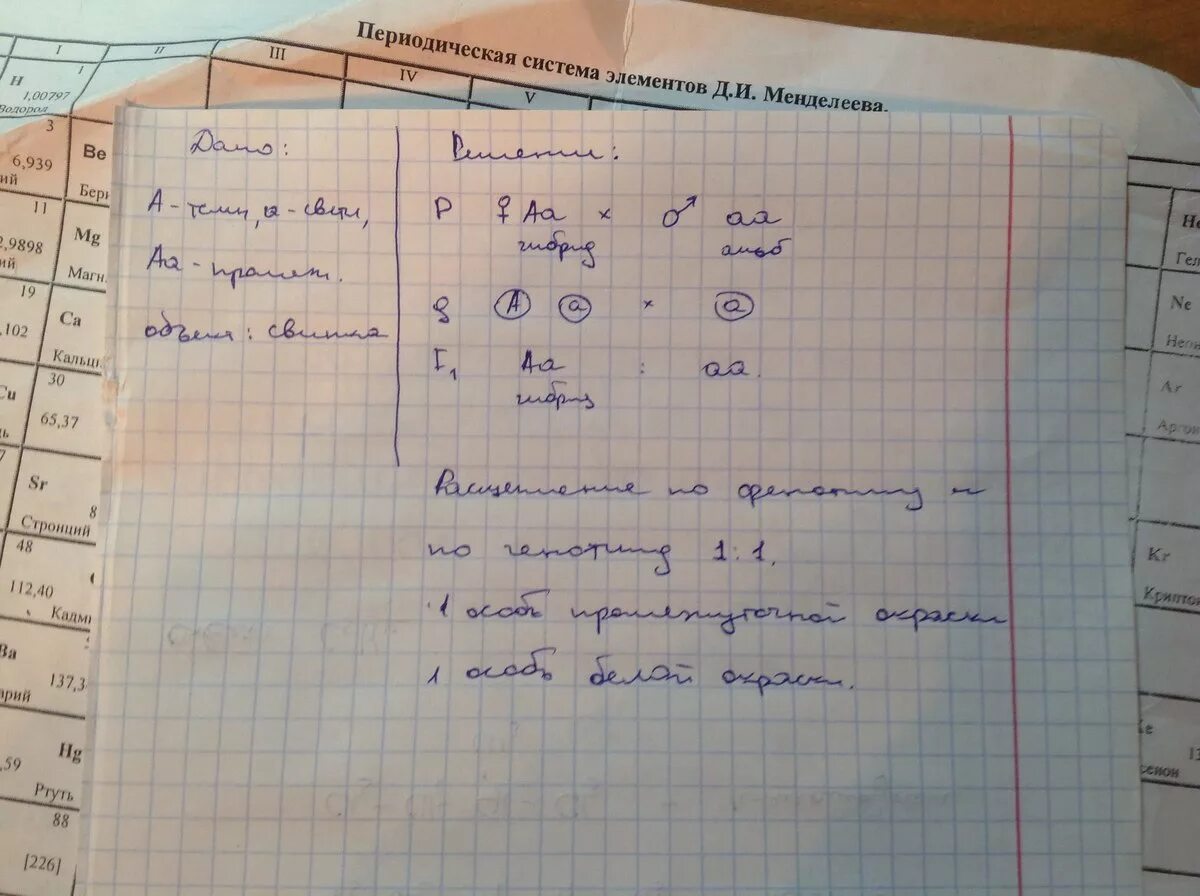 Периодическая система элементов Д.И. Менделеева.
I II III IV V
H I
1,00797
Водород
3 Be
6,939
Бери
11 Mg
2,9898
Магн
19 Ca
,102
Кальци
30
65,37
Sr
Стронций
48
112,40
Кадми
Ba
137,3
арий
Hg
,59
Ртуть
88
[226]
Дано:
А - темн, а - светл,
Аа - промеж.
объект: свинка
Решение:
P ♀ Аа × ♂ аа
гибрид альб
g А а × а
F₁ Аа : аа.
гибрид
Расщепление по фенотипу и
по генотипу 1:1.
1 особь промежуточной окраски
1 особь белой окраски.
He
Гел
Ne
Нео
Ar
Аргон
Kr
Криптон
Xe
сенон